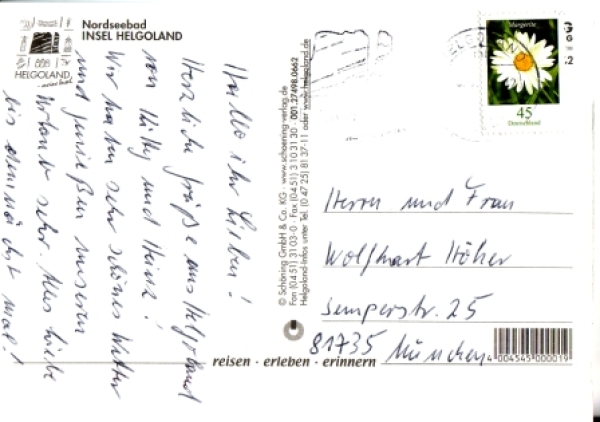 Nordseebad
INSEL HELGOLAND
HELGOLAND
Hallo ihr Lieben!
Herzliche Grüße aus Helgoland
von Kitty und Heinz!
Wir haben sehr schönes Wetter
und genießen unseren
Urlaub sehr. Alles Liebe
bis demnächst mal!
© Schöning GmbH & Co. KG · www.schoening-verlag.de
Fon (04 51) 3 10 3-0 · Fax (04 51) 3 10 31 30 · 001.27498.0662
Helgoland-Infos unter Tel. (0 47 25) 81 37-11 oder www.helgoland.de
Margerite
45
Deutschland
Herrn und Frau
Wolfhart Höher
Semperstr. 25
81735 München
reisen · erleben · erinnern
4 004545 000019